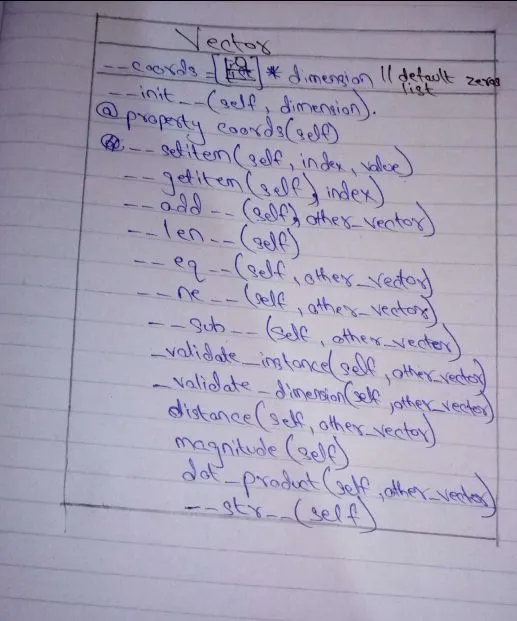 Vector
__coords = [ ] * dimension // default zeros
list
__init__(self, dimension).
@property coords(self)
__setitem(self, index, value)
__getitem(self, index)
__add__(self, other_vector)
__len__(self)
__eq__(self, other_vector)
__ne__(self, other_vector)
__sub__(self, other_vector)
_validate_instance(self, other_vector)
_validate_dimension(self, other_vector)
distance(self, other_vector)
magnitude(self)
dot_product(self, other_vector)
__str__(self)